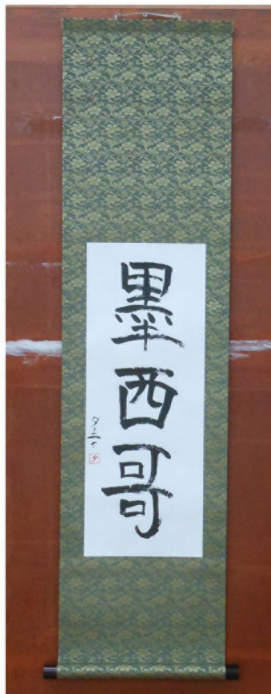 墨西哥